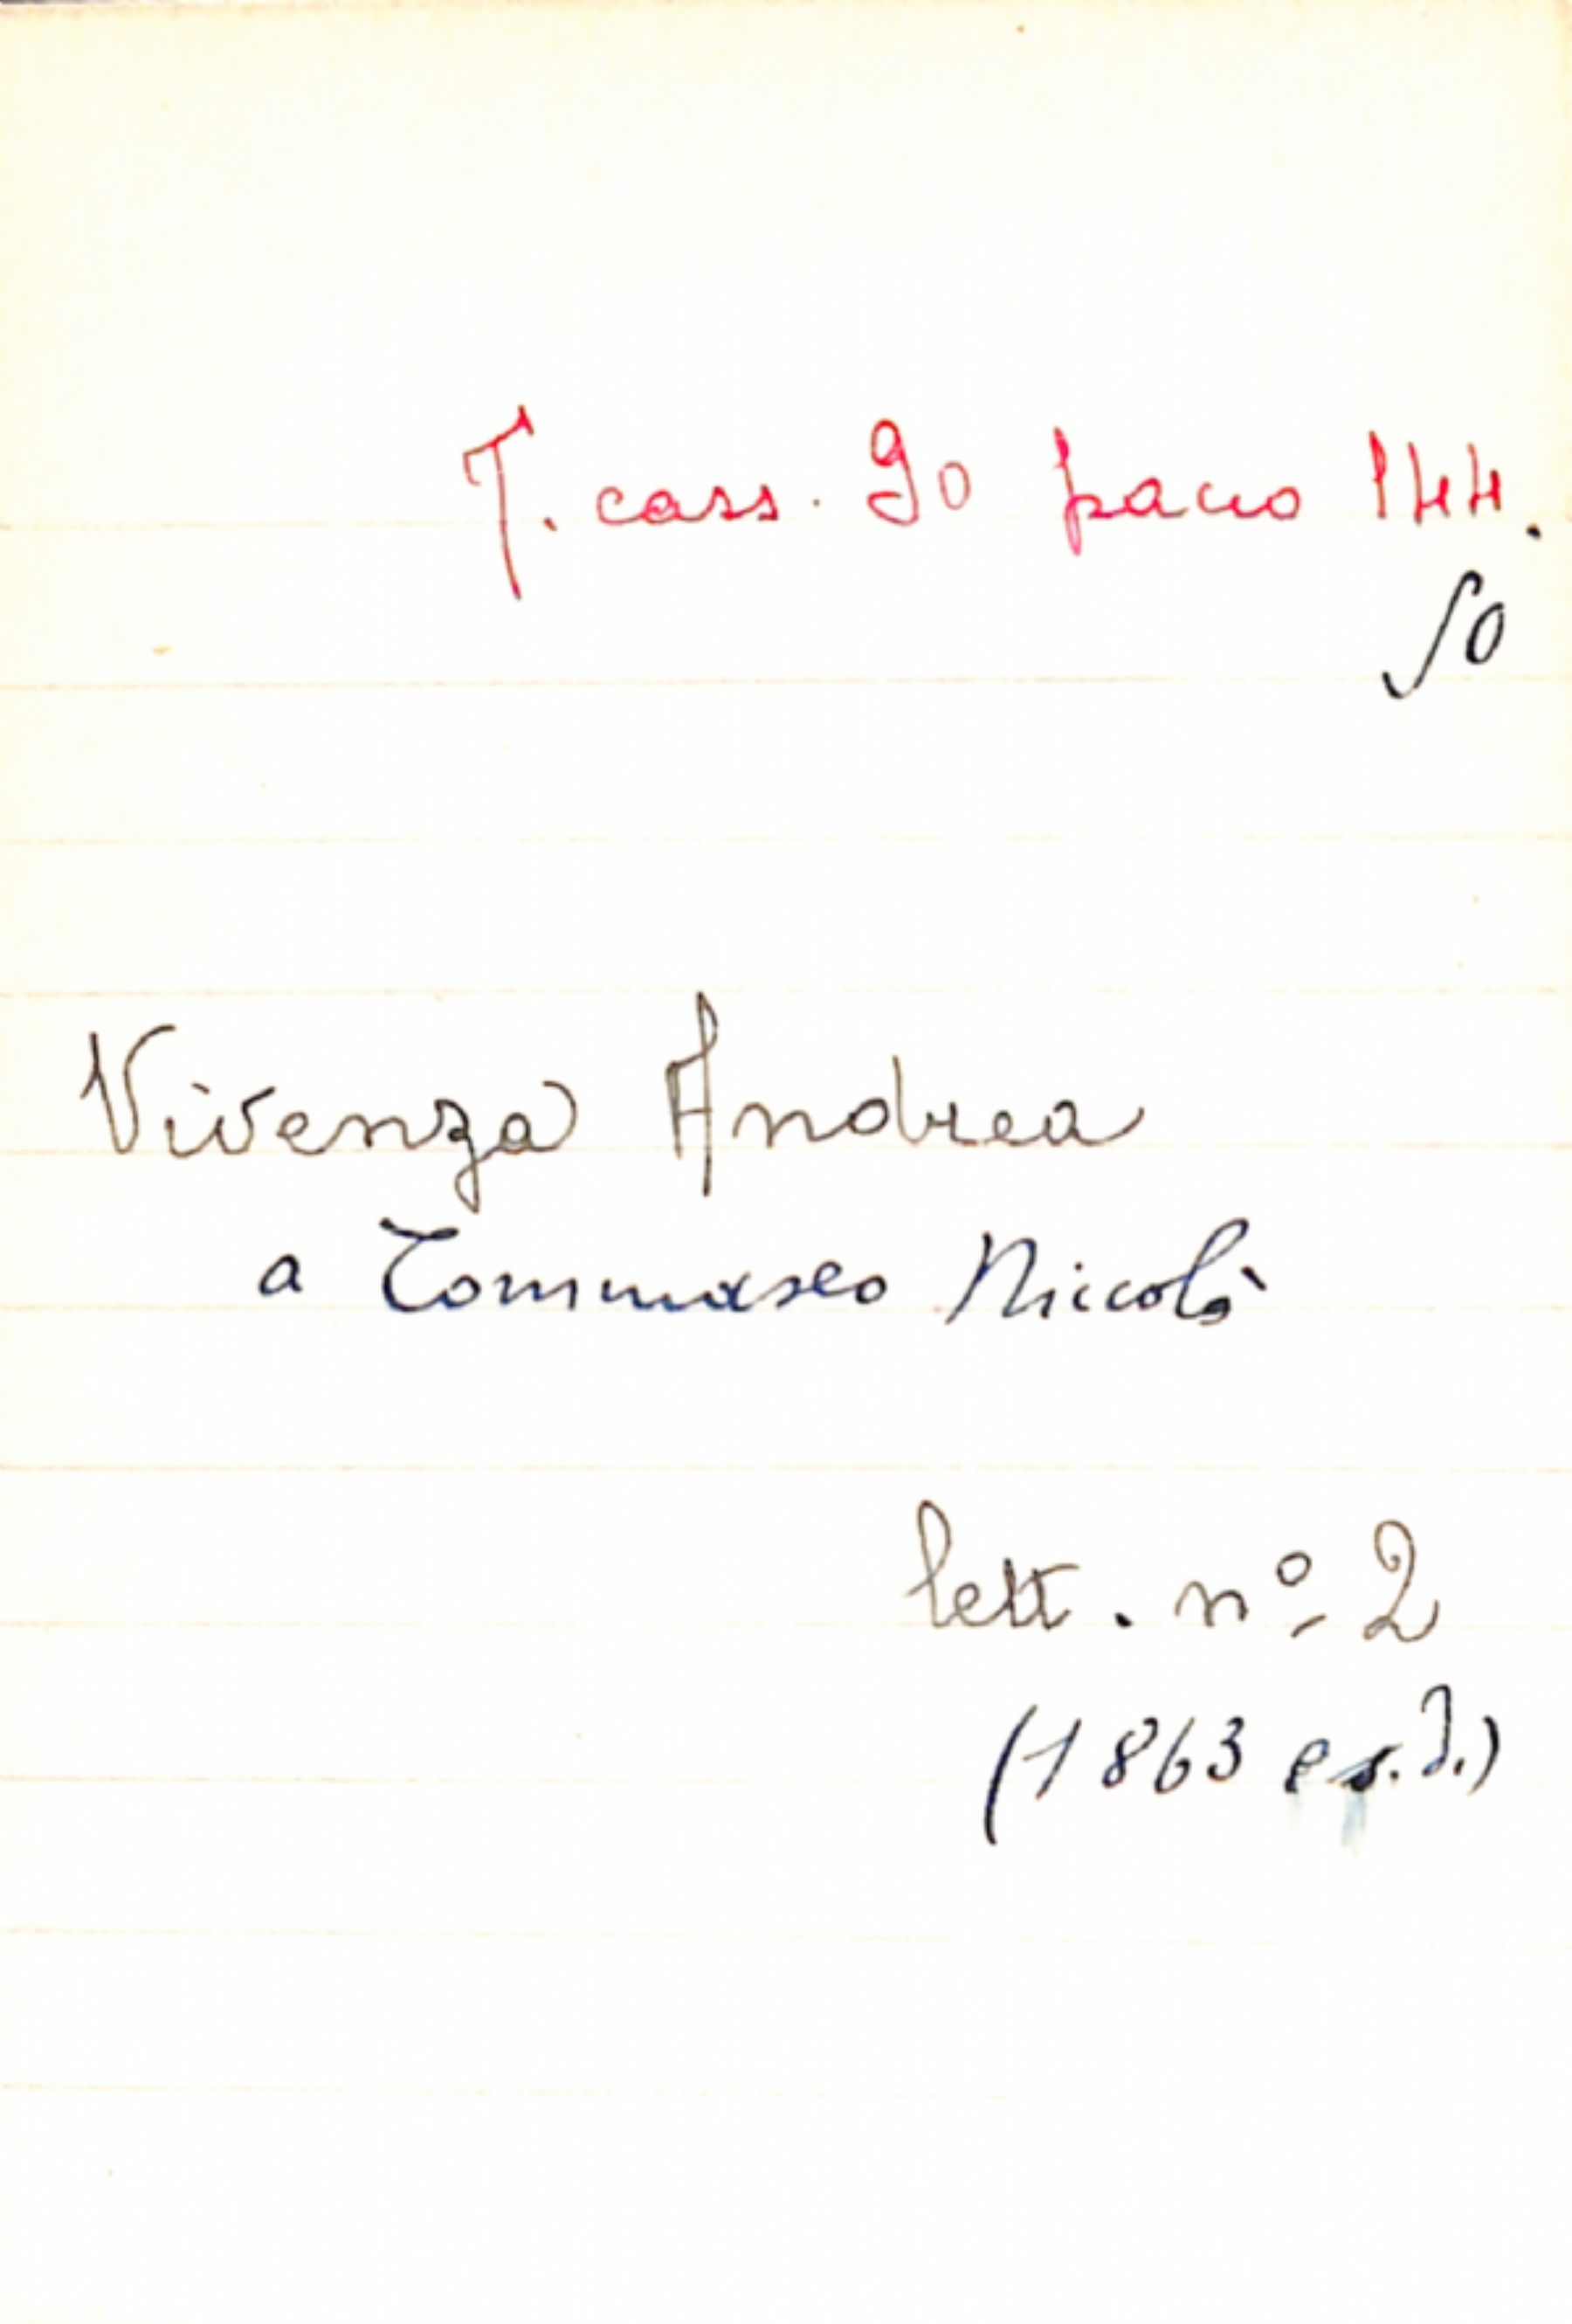 T. cass. 90 pacco 144.
50
Vivenza Andrea
a Tommaseo Niccolò
lett. nº 2
(1863 e s.d.)